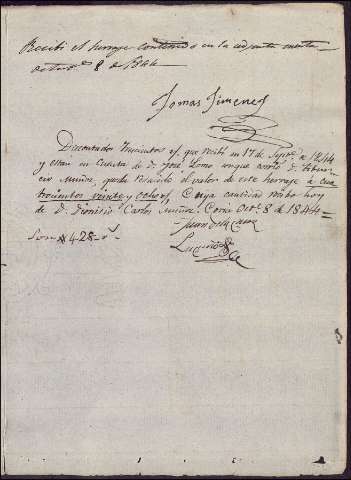 Recibi el herraje contenido en la adjunta cuenta
Octubre 8 de 1844
Tomas Jimenez
Descontados trecientos rs. que recibi en 17 de Sepre. de 1844
y estan en Cuenta de Dn. José Lomo aunque
Muñoz, queda el valor de este herraje a cua
trocientos veinte y ocho rs. Cuya cantidad recibo hoy
de D. Dionisio Carlos Muñoz. Coria Octe. 8 de 1844
Juan de la
Son # 428 rs.